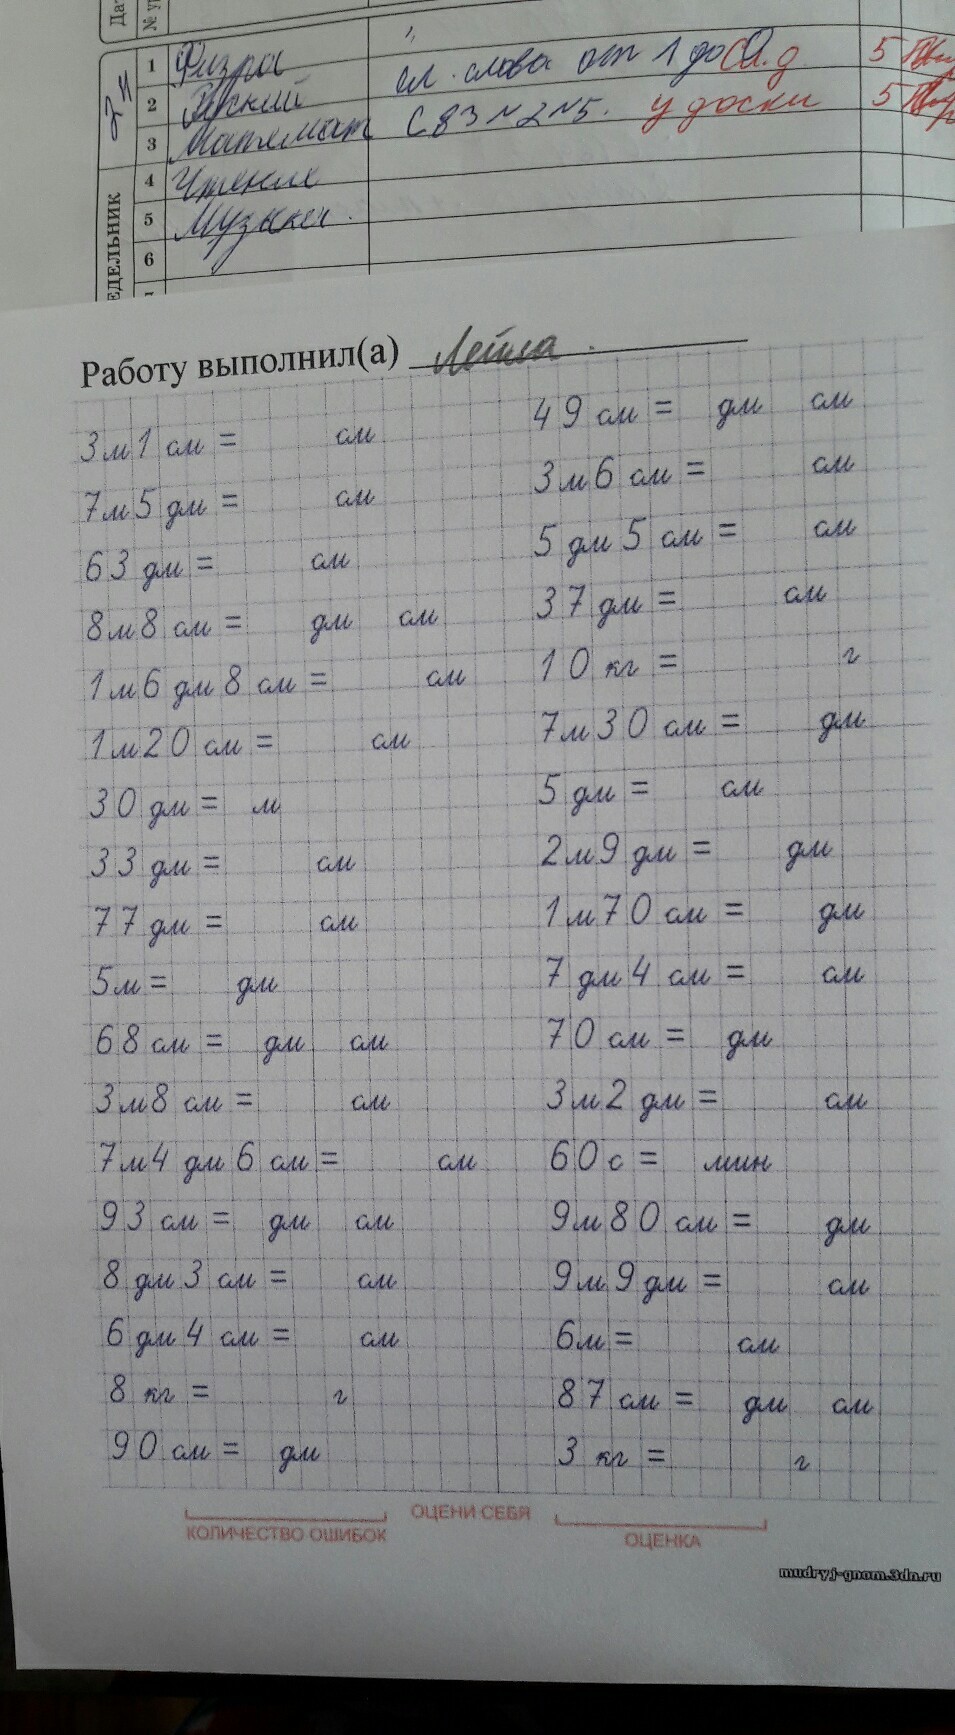 Дат
№ ур
1 Физра
2 Русский гл. слова от 1 до Сл. д 5
3 Математ С 83 №2 №5. у доски 5
4 Чтение
5 Музыка.
6
ЕДЕЛЬНИК
Работу выполнил(а) Лейла.
3 м 1 см = см 49 см = дм см
7 м 5 дм = см 3 м 6 см = см
63 дм = см 5 дм 5 см = см
8 м 8 см = дм см 37 дм = см
1 м 6 дм 8 см = см 10 кг = г
1 м 20 см = см 7 м 30 см = дм
30 дм = м 5 дм = см
33 дм = см 2 м 9 дм = дм
77 дм = см 1 м 70 см = дм
5 м = дм 7 дм 4 см = см
68 см = дм см 70 см = дм
3 м 8 см = см 3 м 2 дм = см
7 м 4 дм 6 см = см 60 с = мин
93 см = дм см 9 м 80 см = дм
8 дм 3 см = см 9 м 9 дм = см
6 дм 4 см = см 6 м = см
8 кг = г 87 см = дм см
90 см = дм 3 кг = г
КОЛИЧЕСТВО ОШИБОК ОЦЕНИ СЕБЯ ОЦЕНКА
mudryj-gnom.3dn.ru